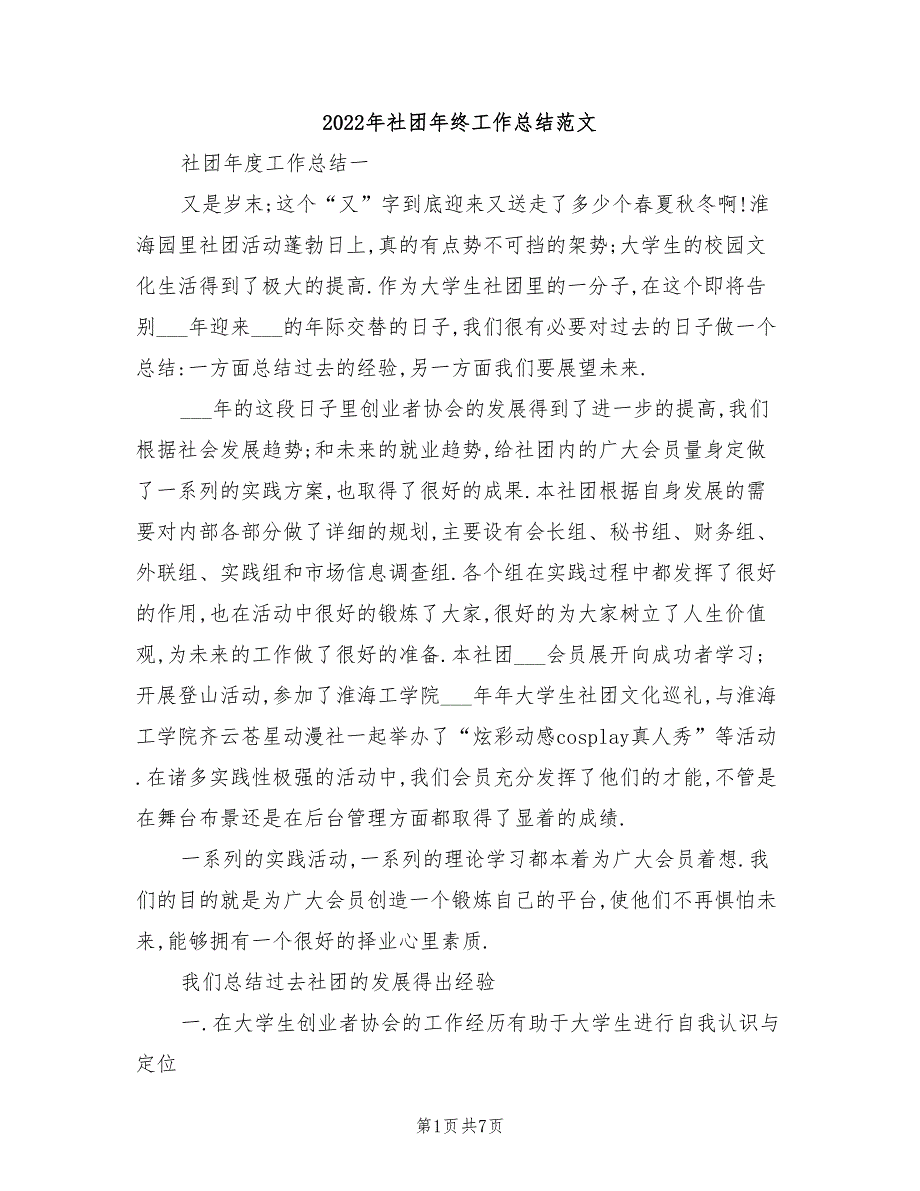 2022年社团年终工作总结范文
社团年度工作总结一
又是岁末;这个“又”字到底迎来又送走了多少个春夏秋冬啊!淮
海园里社团活动蓬勃日上,真的有点势不可挡的架势;大学生的校园文
化生活得到了极大的提高.作为大学生社团里的一分子,在这个即将告
别___年迎来___的年际交替的日子,我们很有必要对过去的日子做一个
总结:一方面总结过去的经验,另一方面我们要展望未来.
___年的这段日子里创业者协会的发展得到了进一步的提高,我们
根据社会发展趋势;和未来的就业趋势,给社团内的广大会员量身定做
了一系列的实践方案,也取得了很好的成果.本社团根据自身发展的需
要对内部各部分做了详细的规划,主要设有会长组、秘书组、财务组、
外联组、实践组和市场信息调查组.各个组在实践过程中都发挥了很好
的作用,也在活动中很好的锻炼了大家,很好的为大家树立了人生价值
观,为未来的工作做了很好的准备.本社团___会员展开向成功者学习;
开展登山活动,参加了淮海工学院___年年大学生社团文化巡礼,与淮海
工学院齐云苍星动漫社一起举办了“炫彩动感cosplay真人秀”等活动
.在诸多实践性极强的活动中,我们会员充分发挥了他们的才能,不管是
在舞台布景还是在后台管理方面都取得了显着的成绩.
一系列的实践活动,一系列的理论学习都本着为广大会员着想.我
们的目的就是为广大会员创造一个锻炼自己的平台,使他们不再惧怕未
来,能够拥有一个很好的择业心里素质.
我们总结过去社团的发展得出经验
一.在大学生创业者协会的工作经历有助于大学生进行自我认识与
定位
第1页共7页